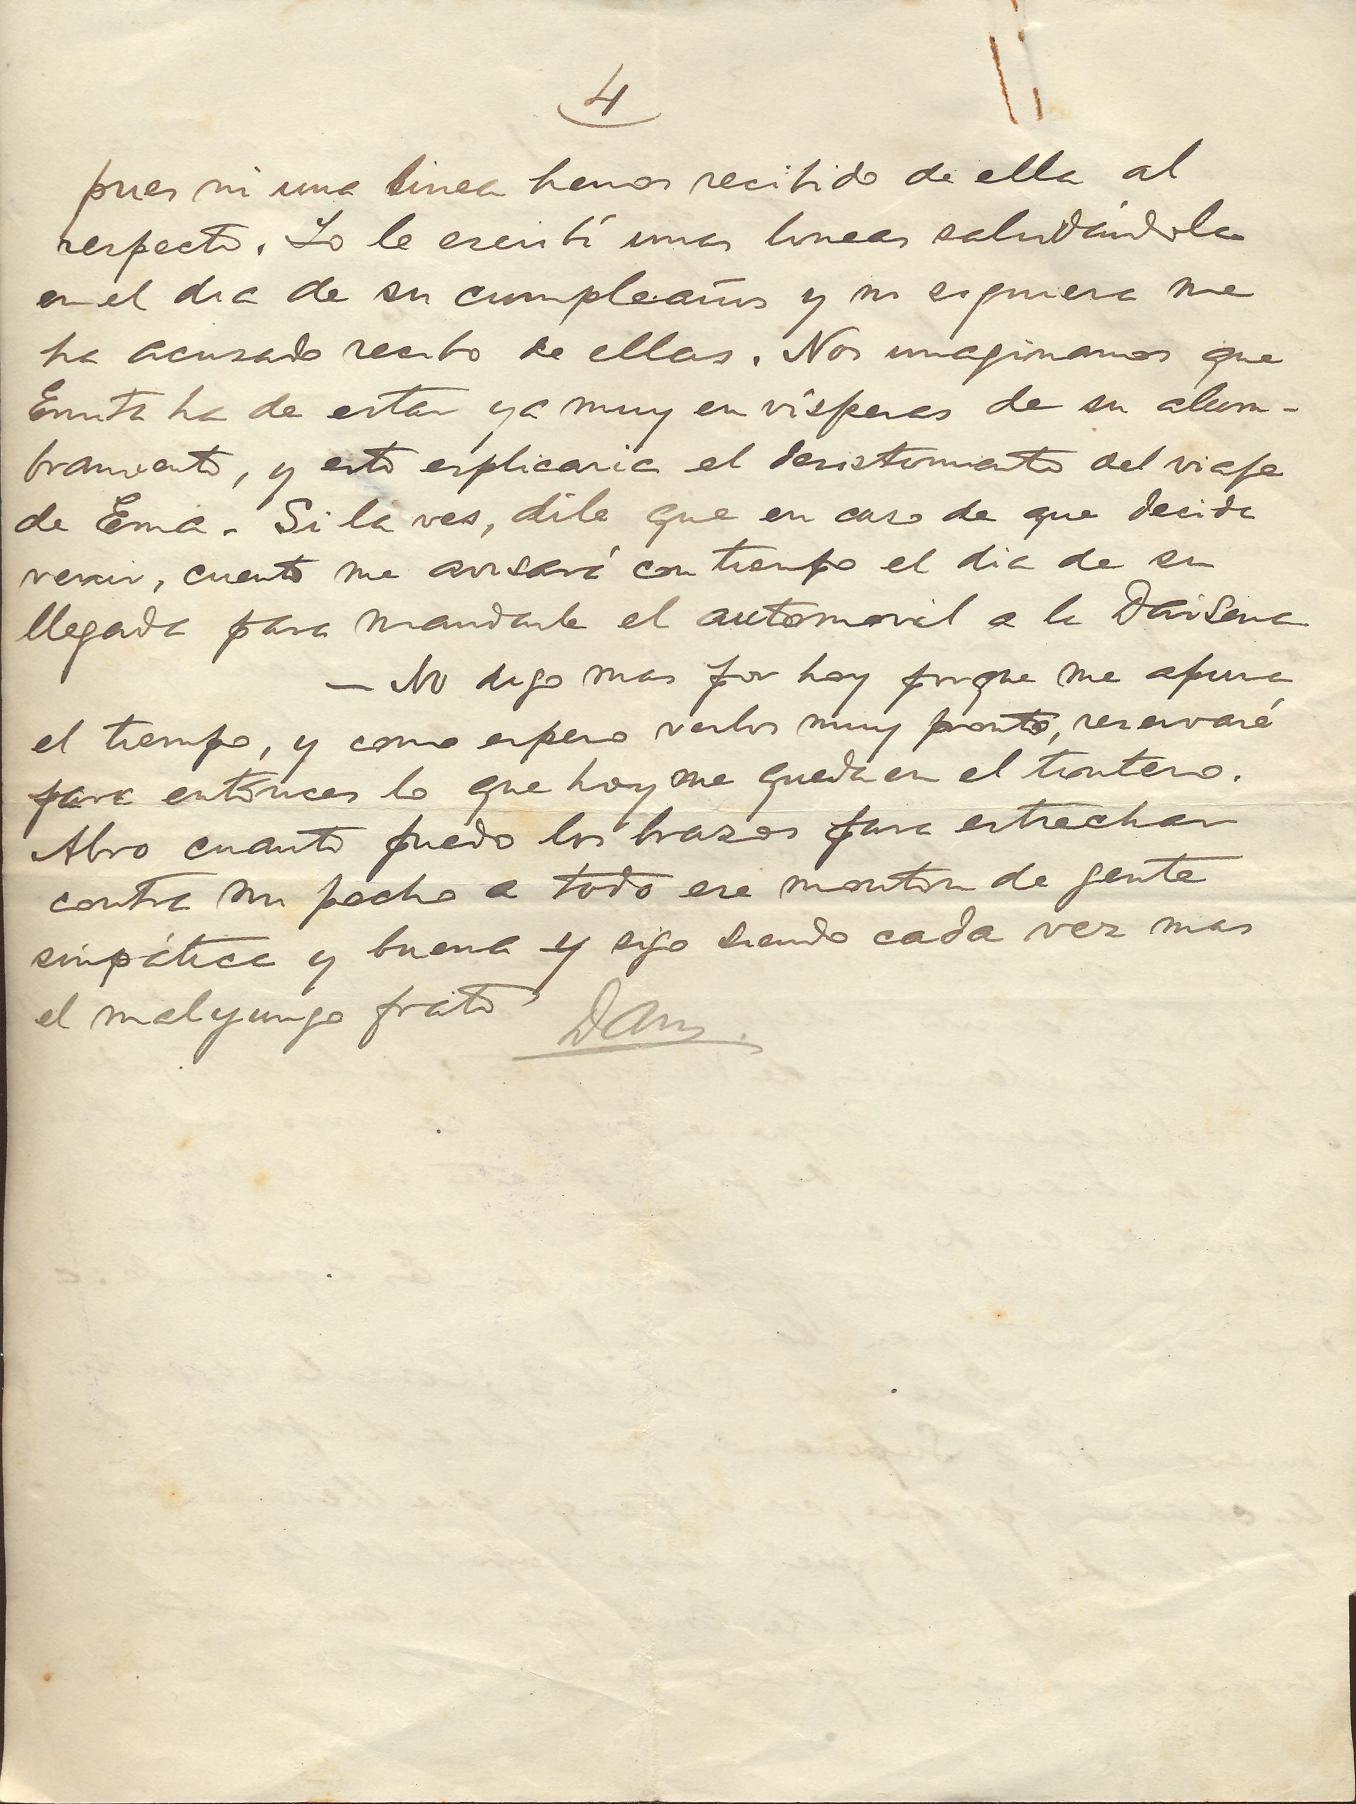 4
pues ni una linea hemos recibido de ella al
respecto. Yo le escribí unas lineas saludándola
en el dia de su cumpleaños y ni siquiera me
ha acusado recibo de ellas. Nos imaginamos que
Emita ha de estar ya muy en vísperas de su alum-
bramiento, y esto esplicaria el desistimiento del viaje
de Ema. Si la ves, dile que en caso de que decida
venir, cuento me avisará con tiempo el dia de su
llegada para mandarle el automovil a la Darsena
— No digo mas por hoy porque me apura
el tiempo, y como espero verlos muy pronto, reservaré
para entonces lo que hoy me queda en el tintero.
Abro cuanto puedo los brazos para estrechar
contra mi pecho a todo ese monton de gente
simpática y buena y sigo siendo cada vez mas
el malyungo frato